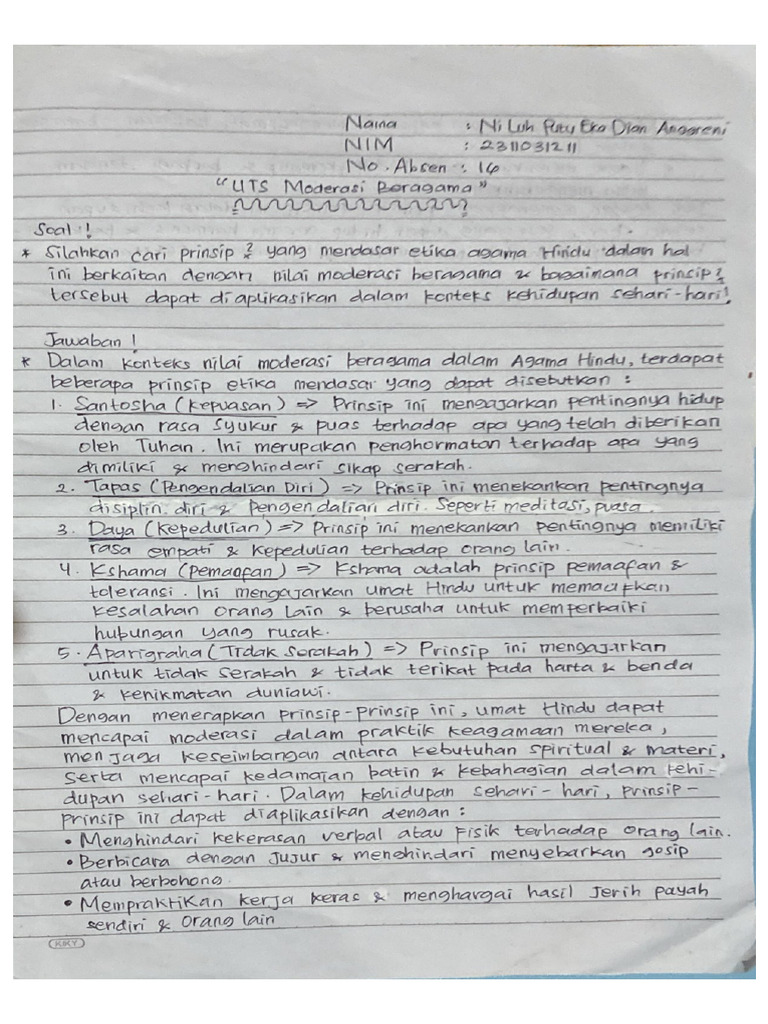 Nama : Ni Luh Putu Eka Dian Anggreni
NIM : 2311031211
No. Absen : 14
"UTS Moderasi Beragama"
Soal !
* Silahkan cari prinsip 2 yang mendasar etika agama Hindu dalam hal
ini berkaitan dengan nilai moderasi beragama & bagaimana prinsip 2
tersebut dapat diaplikasikan dalam konteks kehidupan sehari-hari!
Jawaban !
* Dalam konteks nilai moderasi beragama dalam Agama Hindu, terdapat
beberapa prinsip etika mendasar yang dapat disebutkan :
1. Santosha (Kepuasan) => Prinsip ini mengajarkan pentingnya hidup
dengan rasa syukur & puas terhadap apa yang telah diberikan
oleh Tuhan. Ini merupakan penghormatan terhadap apa yang
dimiliki & menghindari sikap serakah.
2. Tapas (Pengendalian Diri) => Prinsip ini menekankan pentingnya
disiplin diri & Pengendalian diri. Seperti meditasi, puasa.
3. Daya (Kepedulian) => Prinsip ini menekankan pentingnya memiliki
rasa empati & kepedulian terhadap orang lain.
4. Kshama (Pemaafan) => Kshama adalah prinsip pemaafan &
toleransi. Ini mengajarkan umat Hindu untuk memaafkan
kesalahan orang lain & berusaha untuk memperbaiki
hubungan yang rusak.
5. Aparigraha (Tidak Serakah) => Prinsip ini mengajarkan
untuk tidak serakah & tidak terikat pada harta & benda
& kenikmatan duniawi.
Dengan menerapkan prinsip-prinsip ini, umat Hindu dapat
mencapai moderasi dalam praktik keagamaan mereka,
menjaga keseimbangan antara kebutuhan spiritual & materi,
serta mencapai kedamaian batin & kebahagian dalam kehi-
dupan sehari-hari. Dalam kehidupan sehari-hari, prinsip-
prinsip ini dapat diaplikasikan dengan :
• Menghindari kekerasan verbal atau fisik terhadap orang lain.
• Berbicara dengan jujur & menghindari menyebarkan gosip
atau berbohong.
• Mempraktikan kerja keras & menghargai hasil jerih payah
sendiri & orang lain
KIKY